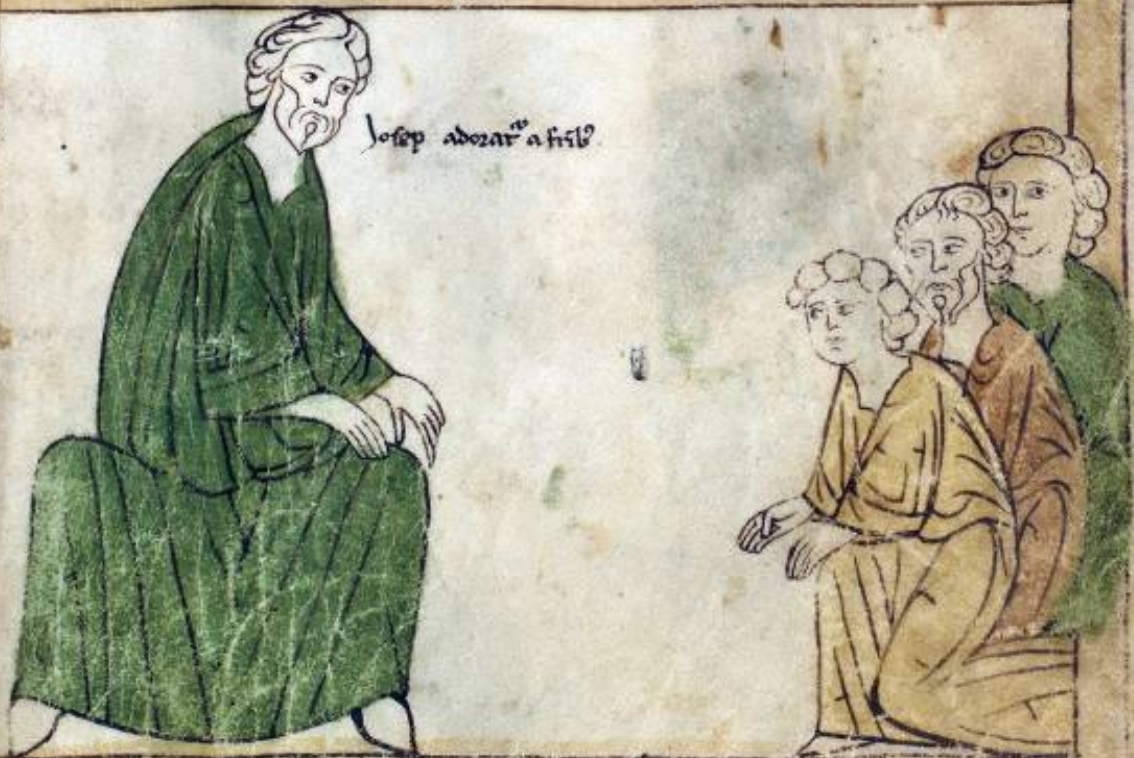 Josep adorat^r a fr̄ib⁹